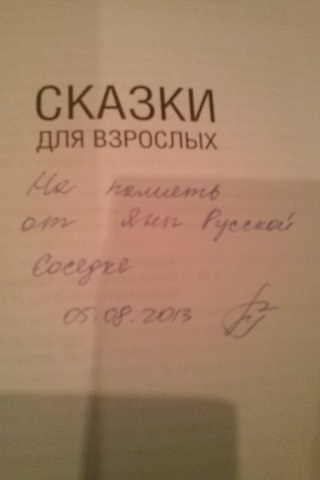 СКАЗКИ
ДЛЯ ВЗРОСЛЫХ
На память
от Яны Русской
Соседке
05.08.2013